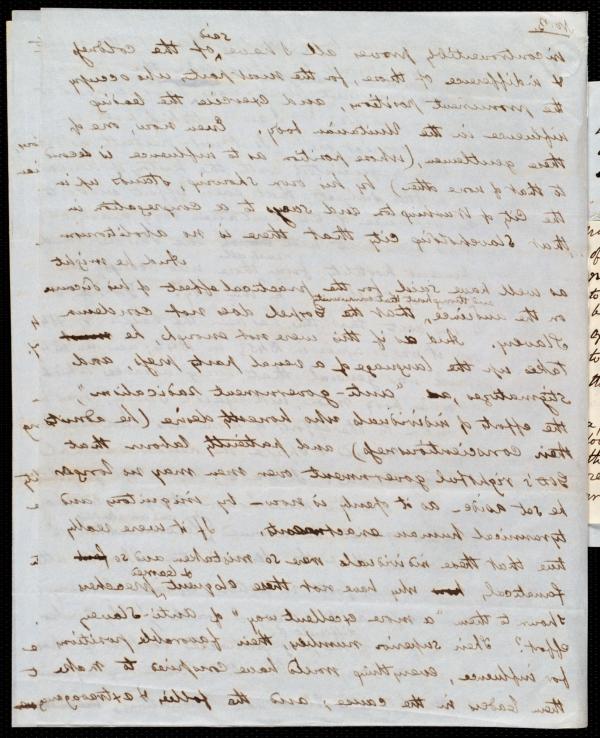 No. 2
said
incontrovertibly prove all I have of the coldness
& indifference of those, for the most part who occupy
the prominent position, and exercise the leading
influence in the Unitarian body. Even now, one of
these gentlemen, (whose position as to influence is second
to that of none other) by his own showing, stands up in
the City of Washington and says to a congregation in
that Slaveholding city that there is no abolitionism
which he might
as well have said for the practical effect of his discourse
and throughout that community
on the audience, that the Gospel does not condemn
Slavery. And as if this were not enough, he must
take up the language of a venal party press, and
stigmatizes, as "anti-government radicalism",
the effort of individuals who honestly desire (he admits
their conscientiousness) and patiently labor that
God's rightful government over men may no longer
be set aside - as it openly is now - by iniquitous and
tyrannical human enactments. If it were really
true that these individuals were so mistaken and so
fanatical, why have not these eloquent preachers
& learned
shown to them "a more excellent way" of Anti-Slavery
effort? Their superior number, their favorable position
for influence, everything would have conspired to make
them leaders in the cause; and the follies & extravagance